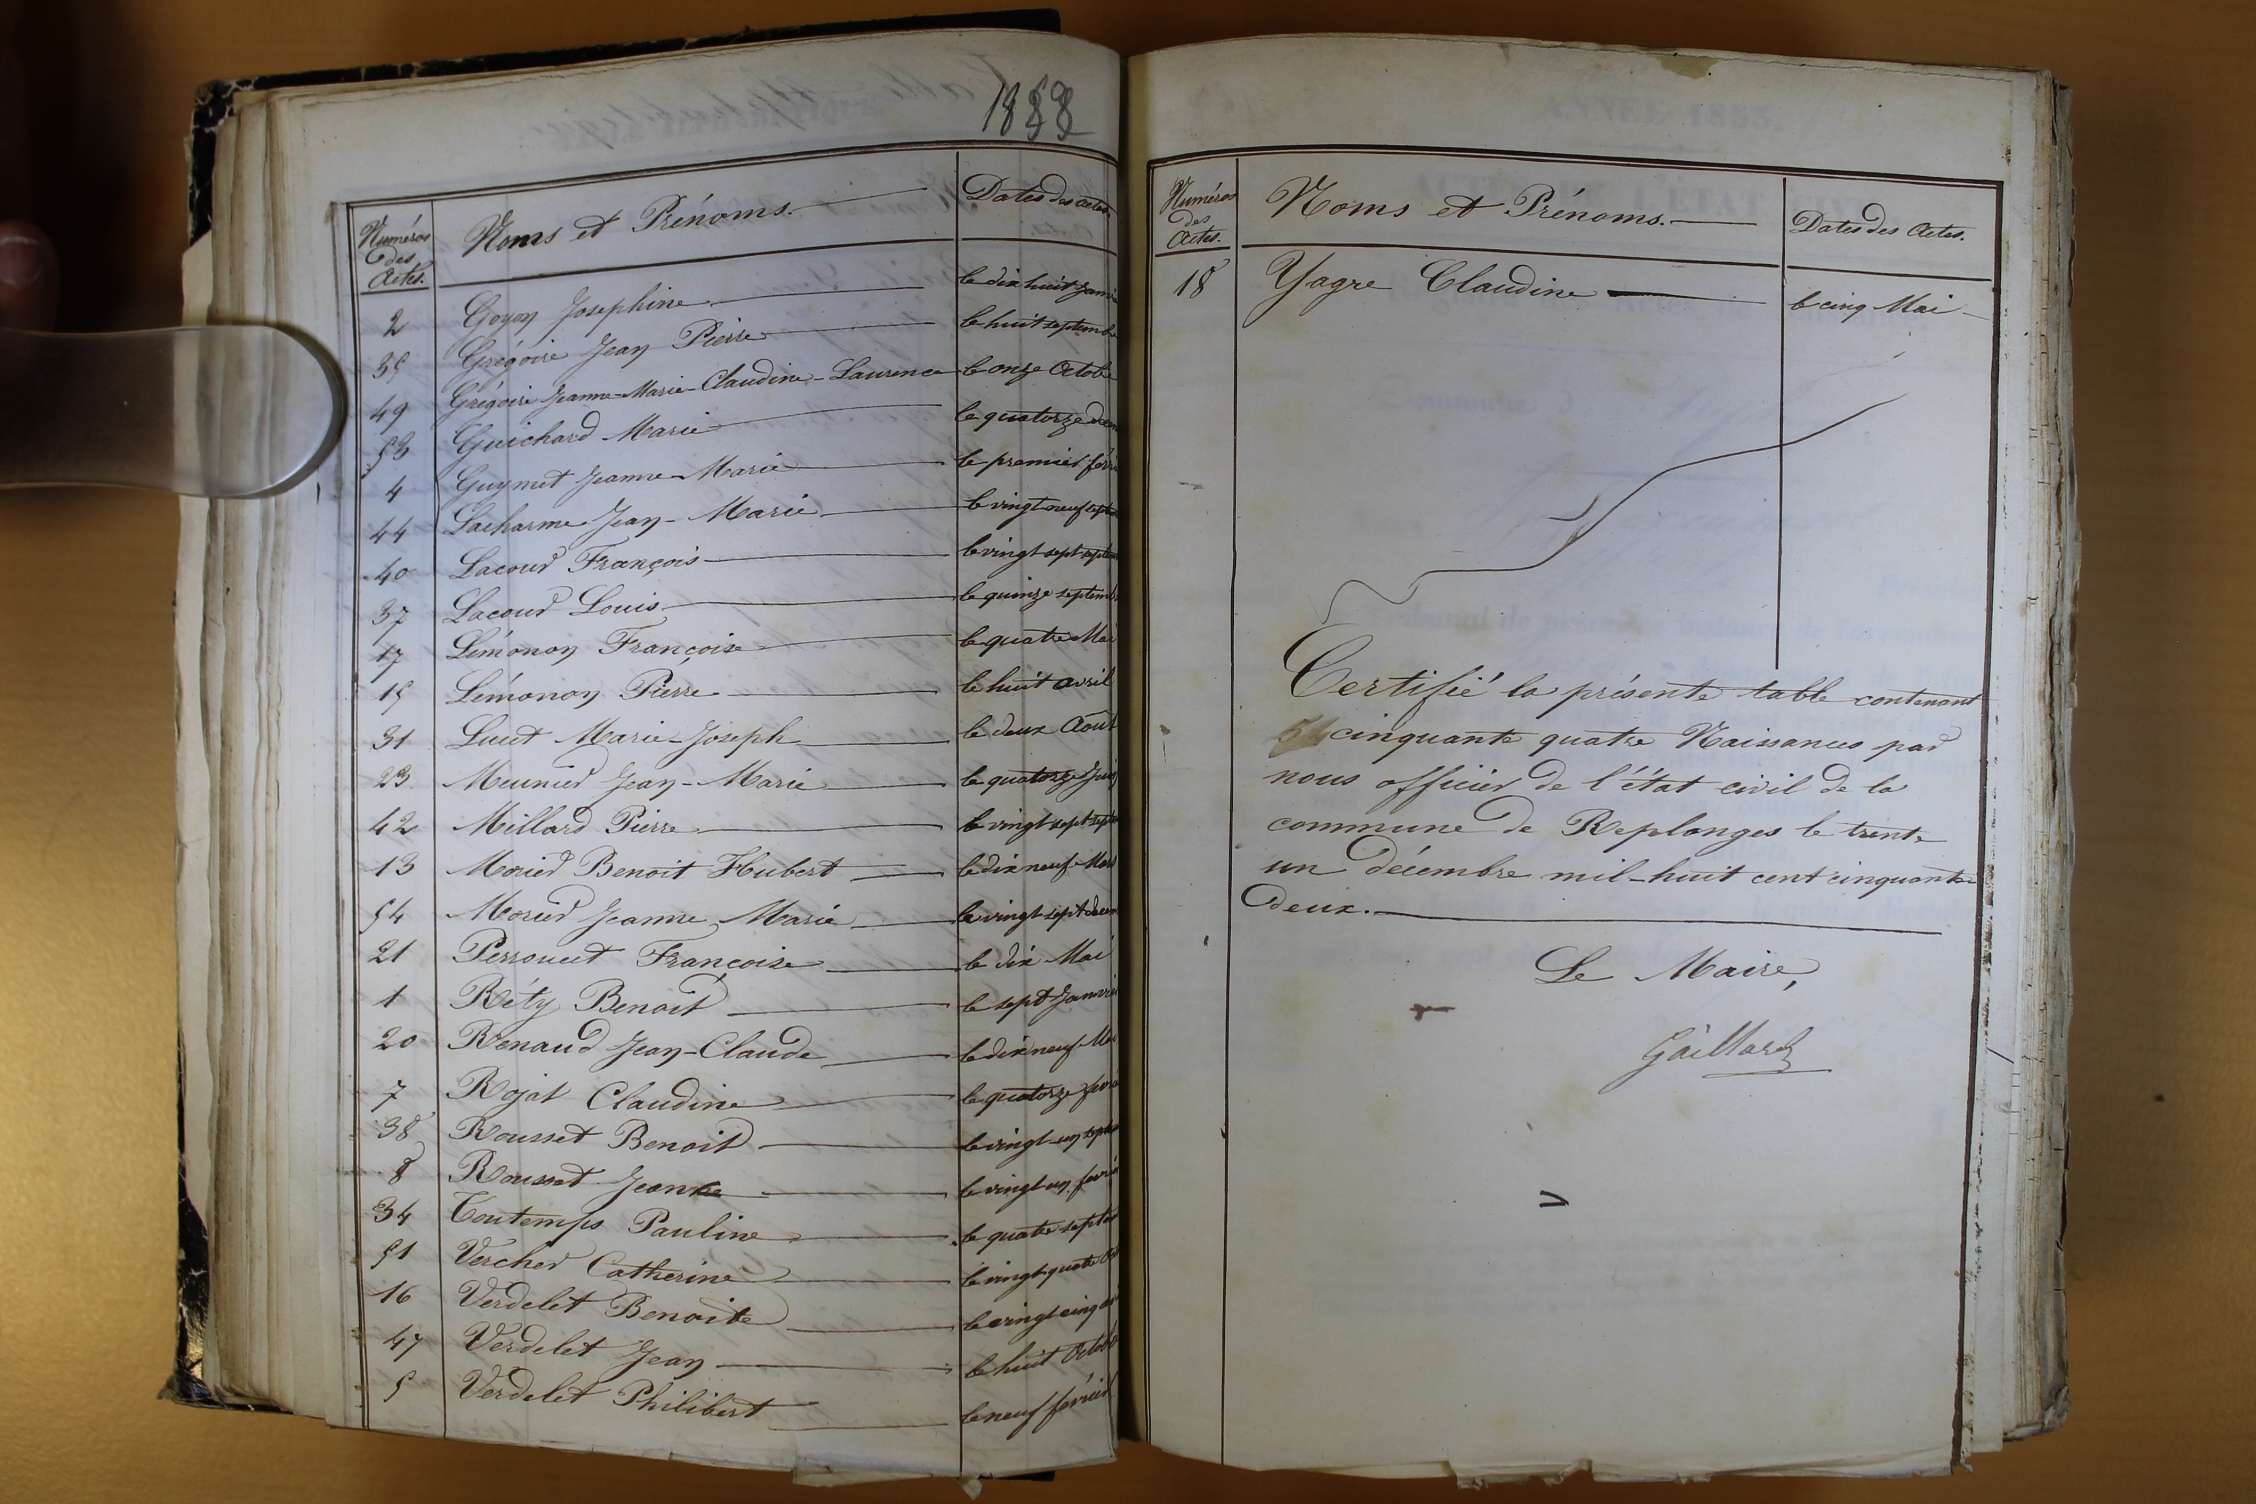 Numéros
des
Actes.
Noms et Prénoms.
Dates des actes
2 Goyon Josephine le dix huit janv
35 Grégoire Jean Pierre le huit septemb
49 Grégoire Jeanne-Marie-Claudine-Laurence le onze Octob
53 Guichard Marie le quatorze
4 Guymet Jeanne-Marie le premier fév
44 Lacharme Jean-Marie le vingt neuf sept
40 Lacour François le vingt sept septem
37 Lacour Louis le quinze septemb
17 Lémonon Françoise le quatre Mai
15 Lémonon Pierre le huit avril
31 Luet Marie-Joseph le deux Août
23 Meunier Jean-Marie le quatorze
42 Millard Pierre le vingt sept sept
13 Morier Benoit Hubert le dix neuf Mars
54 Jeanne Marie le vingt sept decem
21 Perrouet Françoise le dix Mai
1 Réty Benoit le sept Janvie
20 Renaud Jean-Claude le dix neuf Mai
7 Rojat Claudine le quatorze fevr
38 Rousset Benoit le vingt-un sept
8 Rousset Jeanne le vingt un fevri
34 Toutemps Pauline le quatre sept
51 Vercher Catherine le vingt quatre
16 Verdelet Benoite le vingt cinq
47 Verdelet Jean le huit Octob
5 Verdelet Philibert le neuf février
Numéros
des
Actes.
Noms et Prénoms.
Dates des Actes.
18 Yagre Claudine le cinq Mai
Certifié la présente table contenant
54 cinquante quatre Naissances par
nous officier de l'état civil de la
commune de Replonges le trente
un décembre mil-huit cent cinquante
deux.
Le Maire,
Gaillard